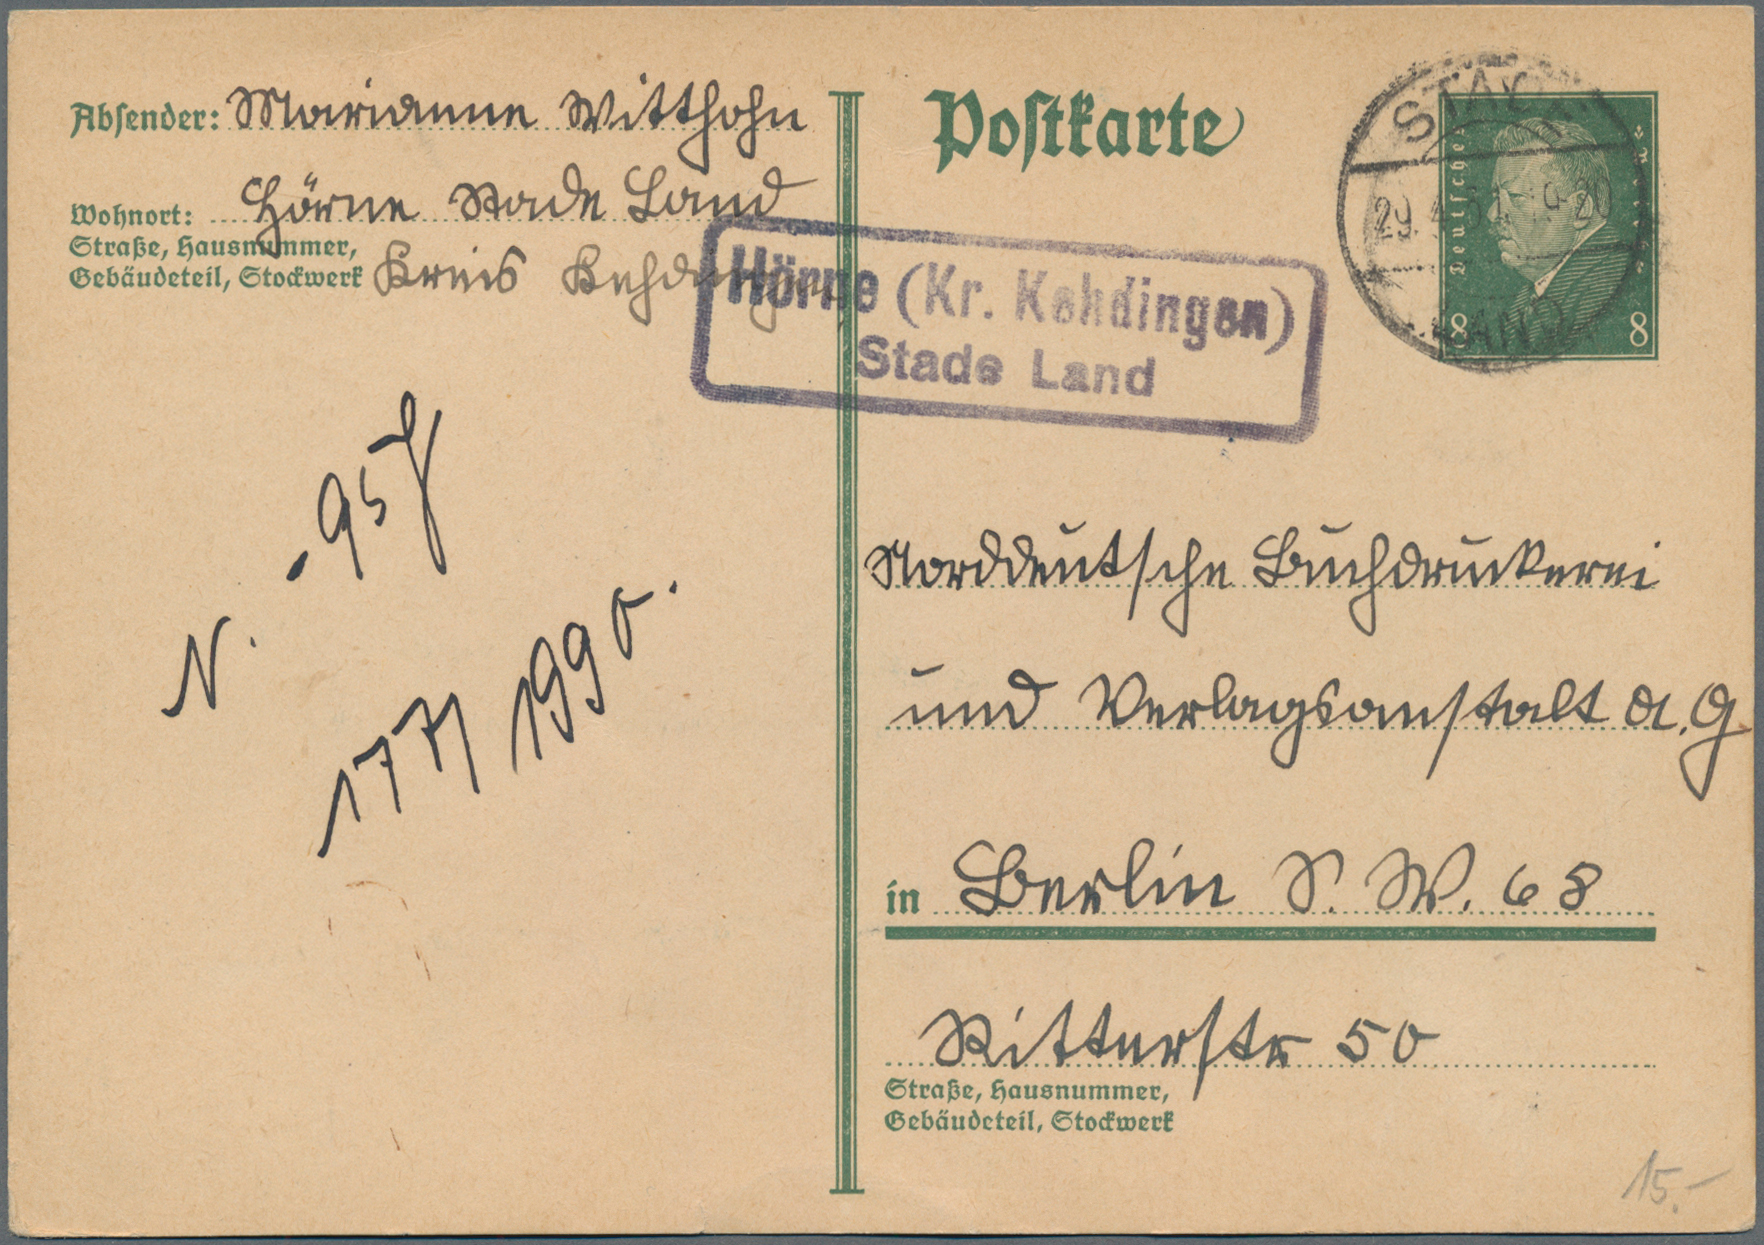 Absender: Marianne Witthohn
Wohnort: Hörne Stade Land
Straße, Hausnummer,
Gebäudeteil, Stockwerk Kreis Kehdingen
Postkarte
STADE
29.4.31 19-20
LAND
Deutsches
8 8
Hörne (Kr. Kehdingen)
Stade Land
N.
Norddeutsche Buchdruckerei
und Verlagsanstalt A.G
in Berlin S.W. 68
Ritterstr 50
Straße, Hausnummer,
Gebäudeteil, Stockwerk
15.-